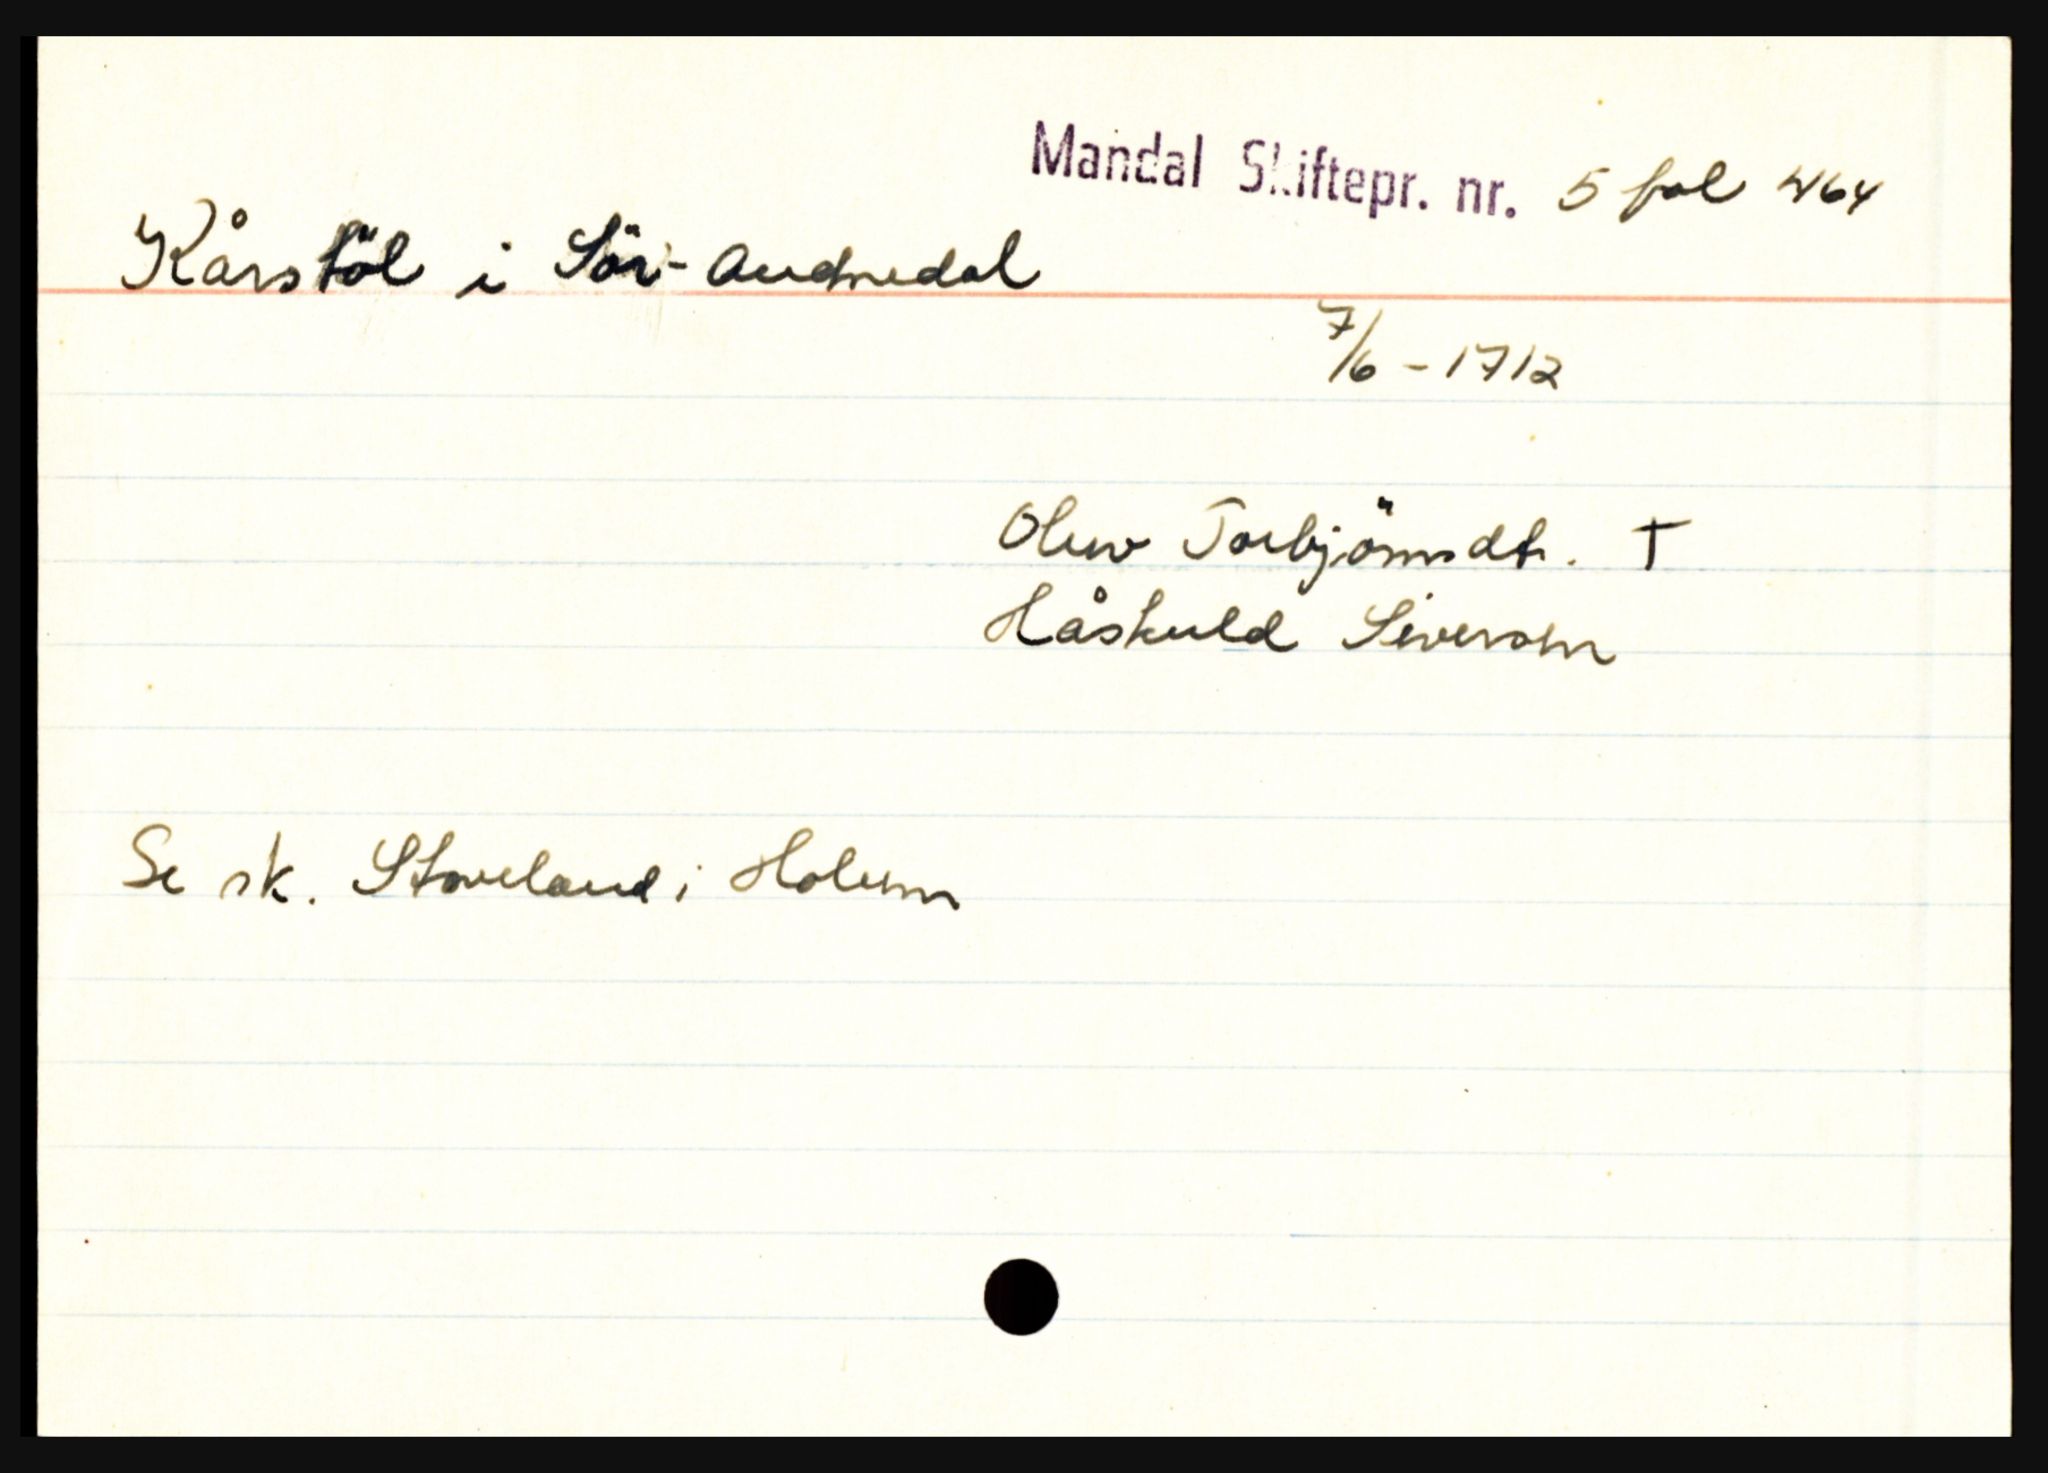 Mandal Skiftepr. nr. 5 fol 464
Kårstöl i Sör-Audnedal
7/6 - 1712
Oluv Torbjörnsdt. †
Håskuld Siversen
Se sk. Stoveland i Holum